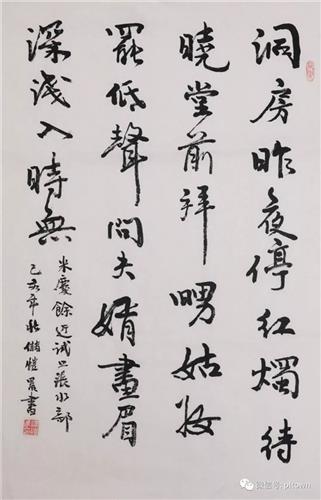 洞房昨夜停紅燭待
曉堂前拜舅姑妝
罷低聲問夫婿畫眉
深淺入時無
朱慶餘近試上張水部
己亥年秋 書
微信号: pltown